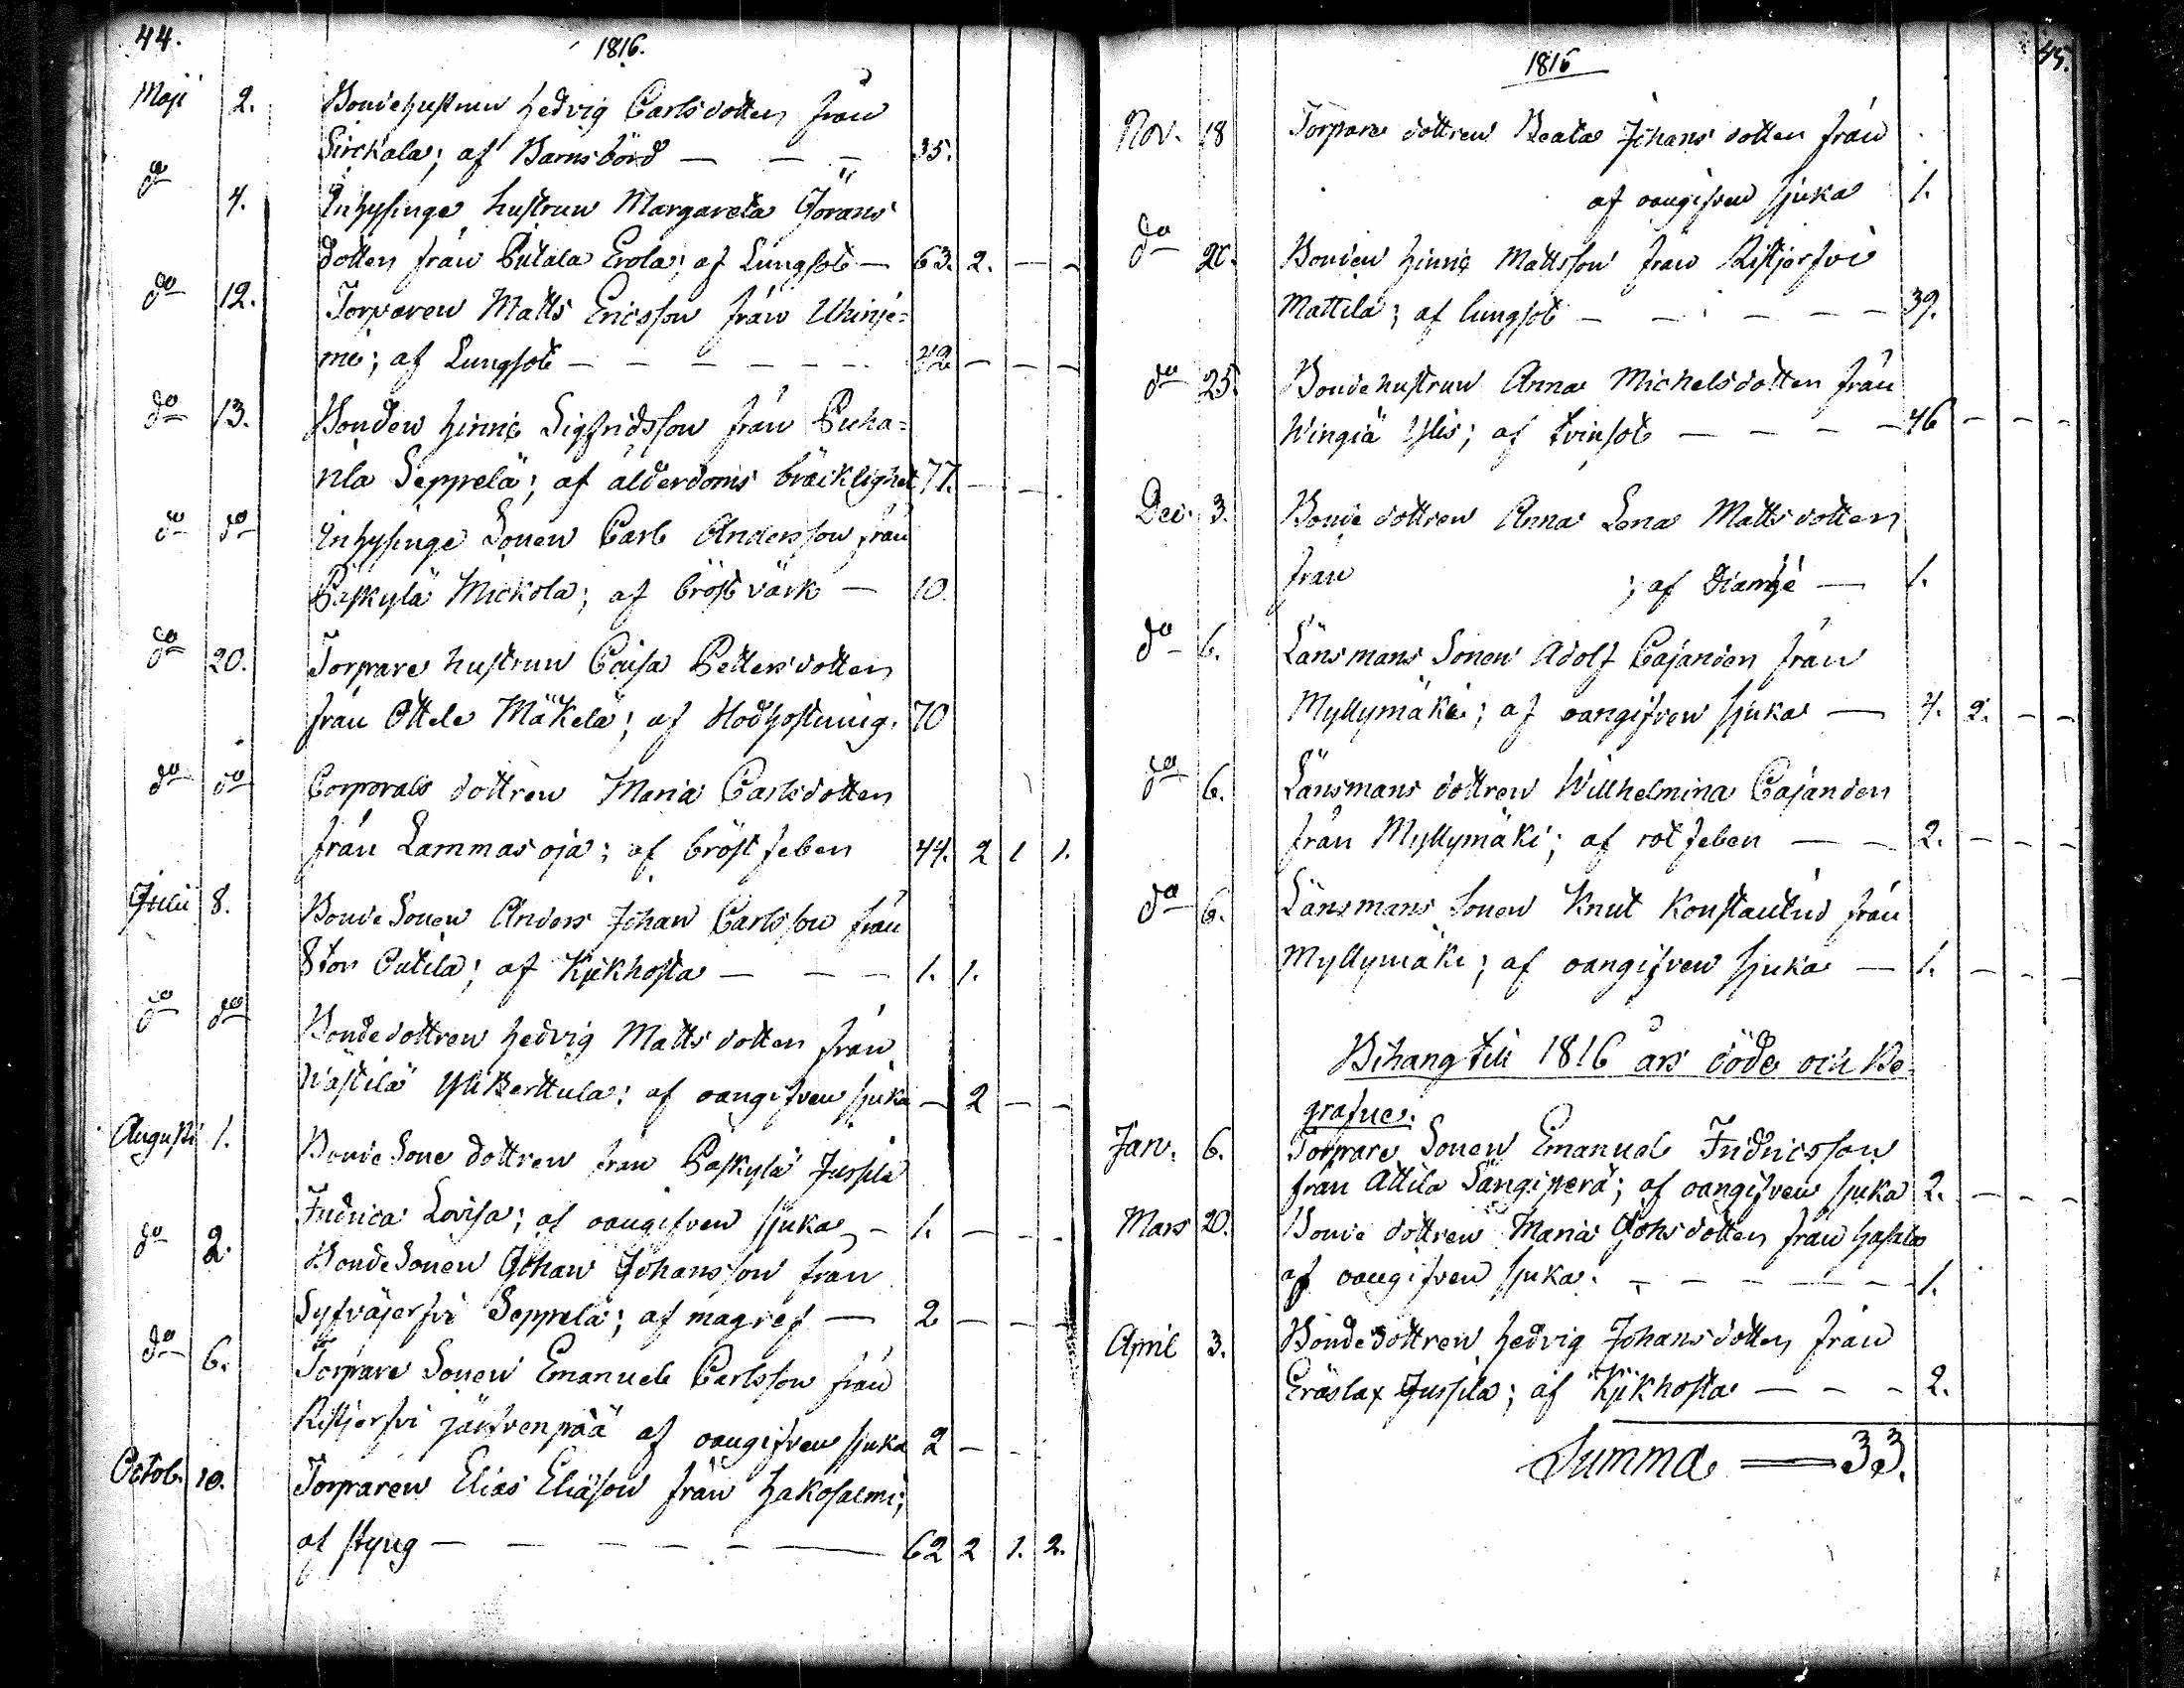 44.
1816.
Maji 2. Bondehustrun Hedvig Carlsdotter från
Sirckala; af Barnsbörd — — — 35.
do 4. Inhysinge hustrun Margareta Görans
dotter från Putala Erola; af Lungsot — 63. 2. — -
do 12. Torparen Matts Ericsson från
mi; af Lungsot — — — — — — 42 — — —
do 13. Bonden Hinric Sigfridsson från Puha=
nla Seppelä; af ålderdoms bräcklighet 77. — —
do do Inhysinge Sonen Carl Andersson från
Päskylä Mickola; af bröst värk — 10.
do 20. Torpare hustrun Caisa Pettersdotter
från Ottela Mäkelä; af Blodhostning. 70
do do Corporals dottren Maria Carlsdotter
från Lammasoja; af bröst feber 44. 2 1 1.
Julii 8. Bonde Sonen Anders Johan Carlsson från
Stor Putila; af Kikhosta — — — 1. 1.
do do Bondedottren Hedvig Matts dotter från
Wästilä Yli Kerttula; af oangifven sjuka — 2 — —
Augusti 1. Bonde Sone dottren från Päskylä Jussila
Fridrica Lovisa; af oangifven sjuka — 1. — - -
do 2. Bonde Sonen Johan Johansson från
Syfväjerfvi Seppelä; af magref — 2 — — —
do 6. Torpare Sonen Emanuel Carlsson från
Ristjerfvi järfvenpää af oangifven sjuka 2 — -
Octob. 10. Torparen Elias Eliasson från Hakosalmi;
af styng — — — — — — 62 2 1. 2.
45.
1816
Nov. 18 Torpare dottren Beata Johans dotter från
af oangifven sjuka 1.
do 20. Bonden Hinric Mattsson från Ristjerfvi
Mattila; af lungsot — — — — — 39.
do 25. Bondehustrun Anna Michelsdotter från
Wingiä Ylis; af tvinsot — — — — 46 — — —
Dec. 3. Bonde dottren Anna Lena Mattsdotter
från ; af Diarrhé — 1.
do 6. Länsmans Sonen Adolf Cajander från
Myllymäki; af oangifven sjuka — 4. 2. — —
do 6. Länsmans dottren Willhelmina Cajander
från Myllymäki; af rötfeber — — 2. — — —
do 6. Länsmans Sonen Knut Konstantin från
Myllymäki; af oangifven sjuka — 1. — — —
Bihang till 1816 års döde och Be-
grafne.
Janv. 6. Torpare Sonen Emanuel Fridricsson
från Attila Sängiperä; af oangifven sjuka 2. — — —
Mars 20. Bonde dottren Maria Johsdotter från
af oangifven sjuka. — — — — — 1.
April 3. Bondedottren Hedvig Johansdotter från
Eräslax Jussila; af Kikhosta — — — 2.
Summa — 33.